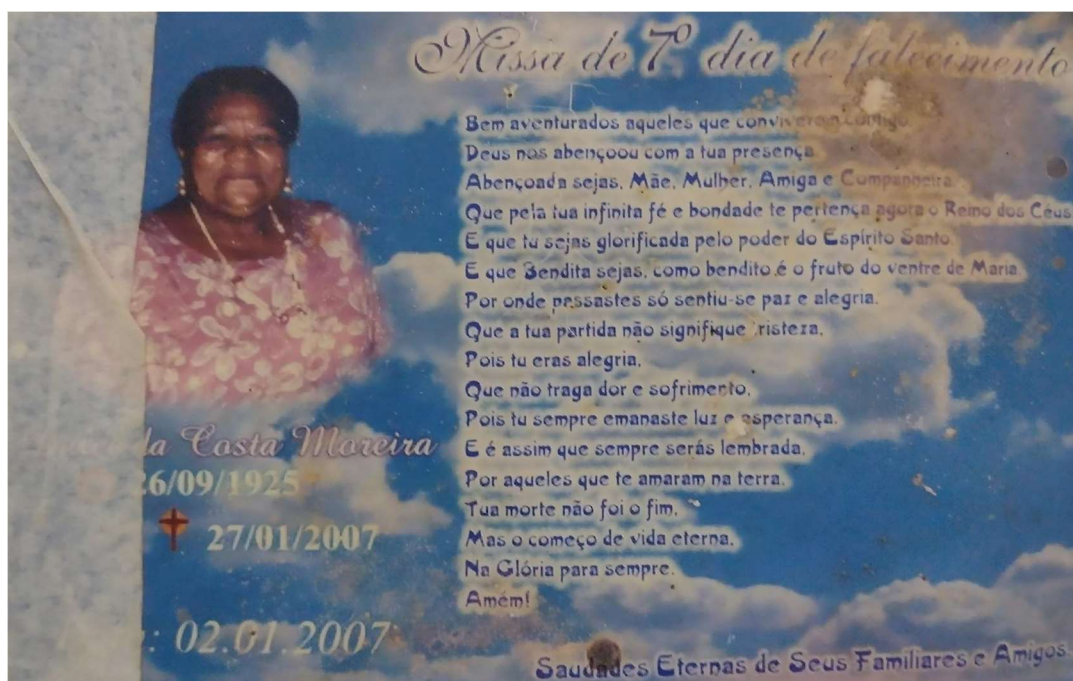 Missa de 7º dia de falecimento
Bem aventurados aqueles que conviveram contigo.
Deus nos abençoou com a tua presença.
Abençoada sejas, Mãe, Mulher, Amiga e Companheira.
Que pela tua infinita fé e bondade te pertença agora o Reino dos Céus
E que tu sejas glorificada pelo poder do Espírito Santo.
E que Bendita sejas, como bendito é o fruto do ventre de Maria.
Por onde passastes só sentiu-se paz e alegria.
Que a tua partida não signifique risteza,
Pois tu eras alegria,
Que não traga dor e sofrimento,
Pois tu sempre emanaste luz e esperança.
E é assim que sempre serás lembrada,
Por aqueles que te amaram na terra.
Tua morte não foi o fim,
Mas o começo de vida eterna,
Na Glória para sempre.
Amém!
da Costa Moreira
26/09/1925
27/01/2007
: 02.01.2007
Saudades Eternas de Seus Familiares e Amigos.